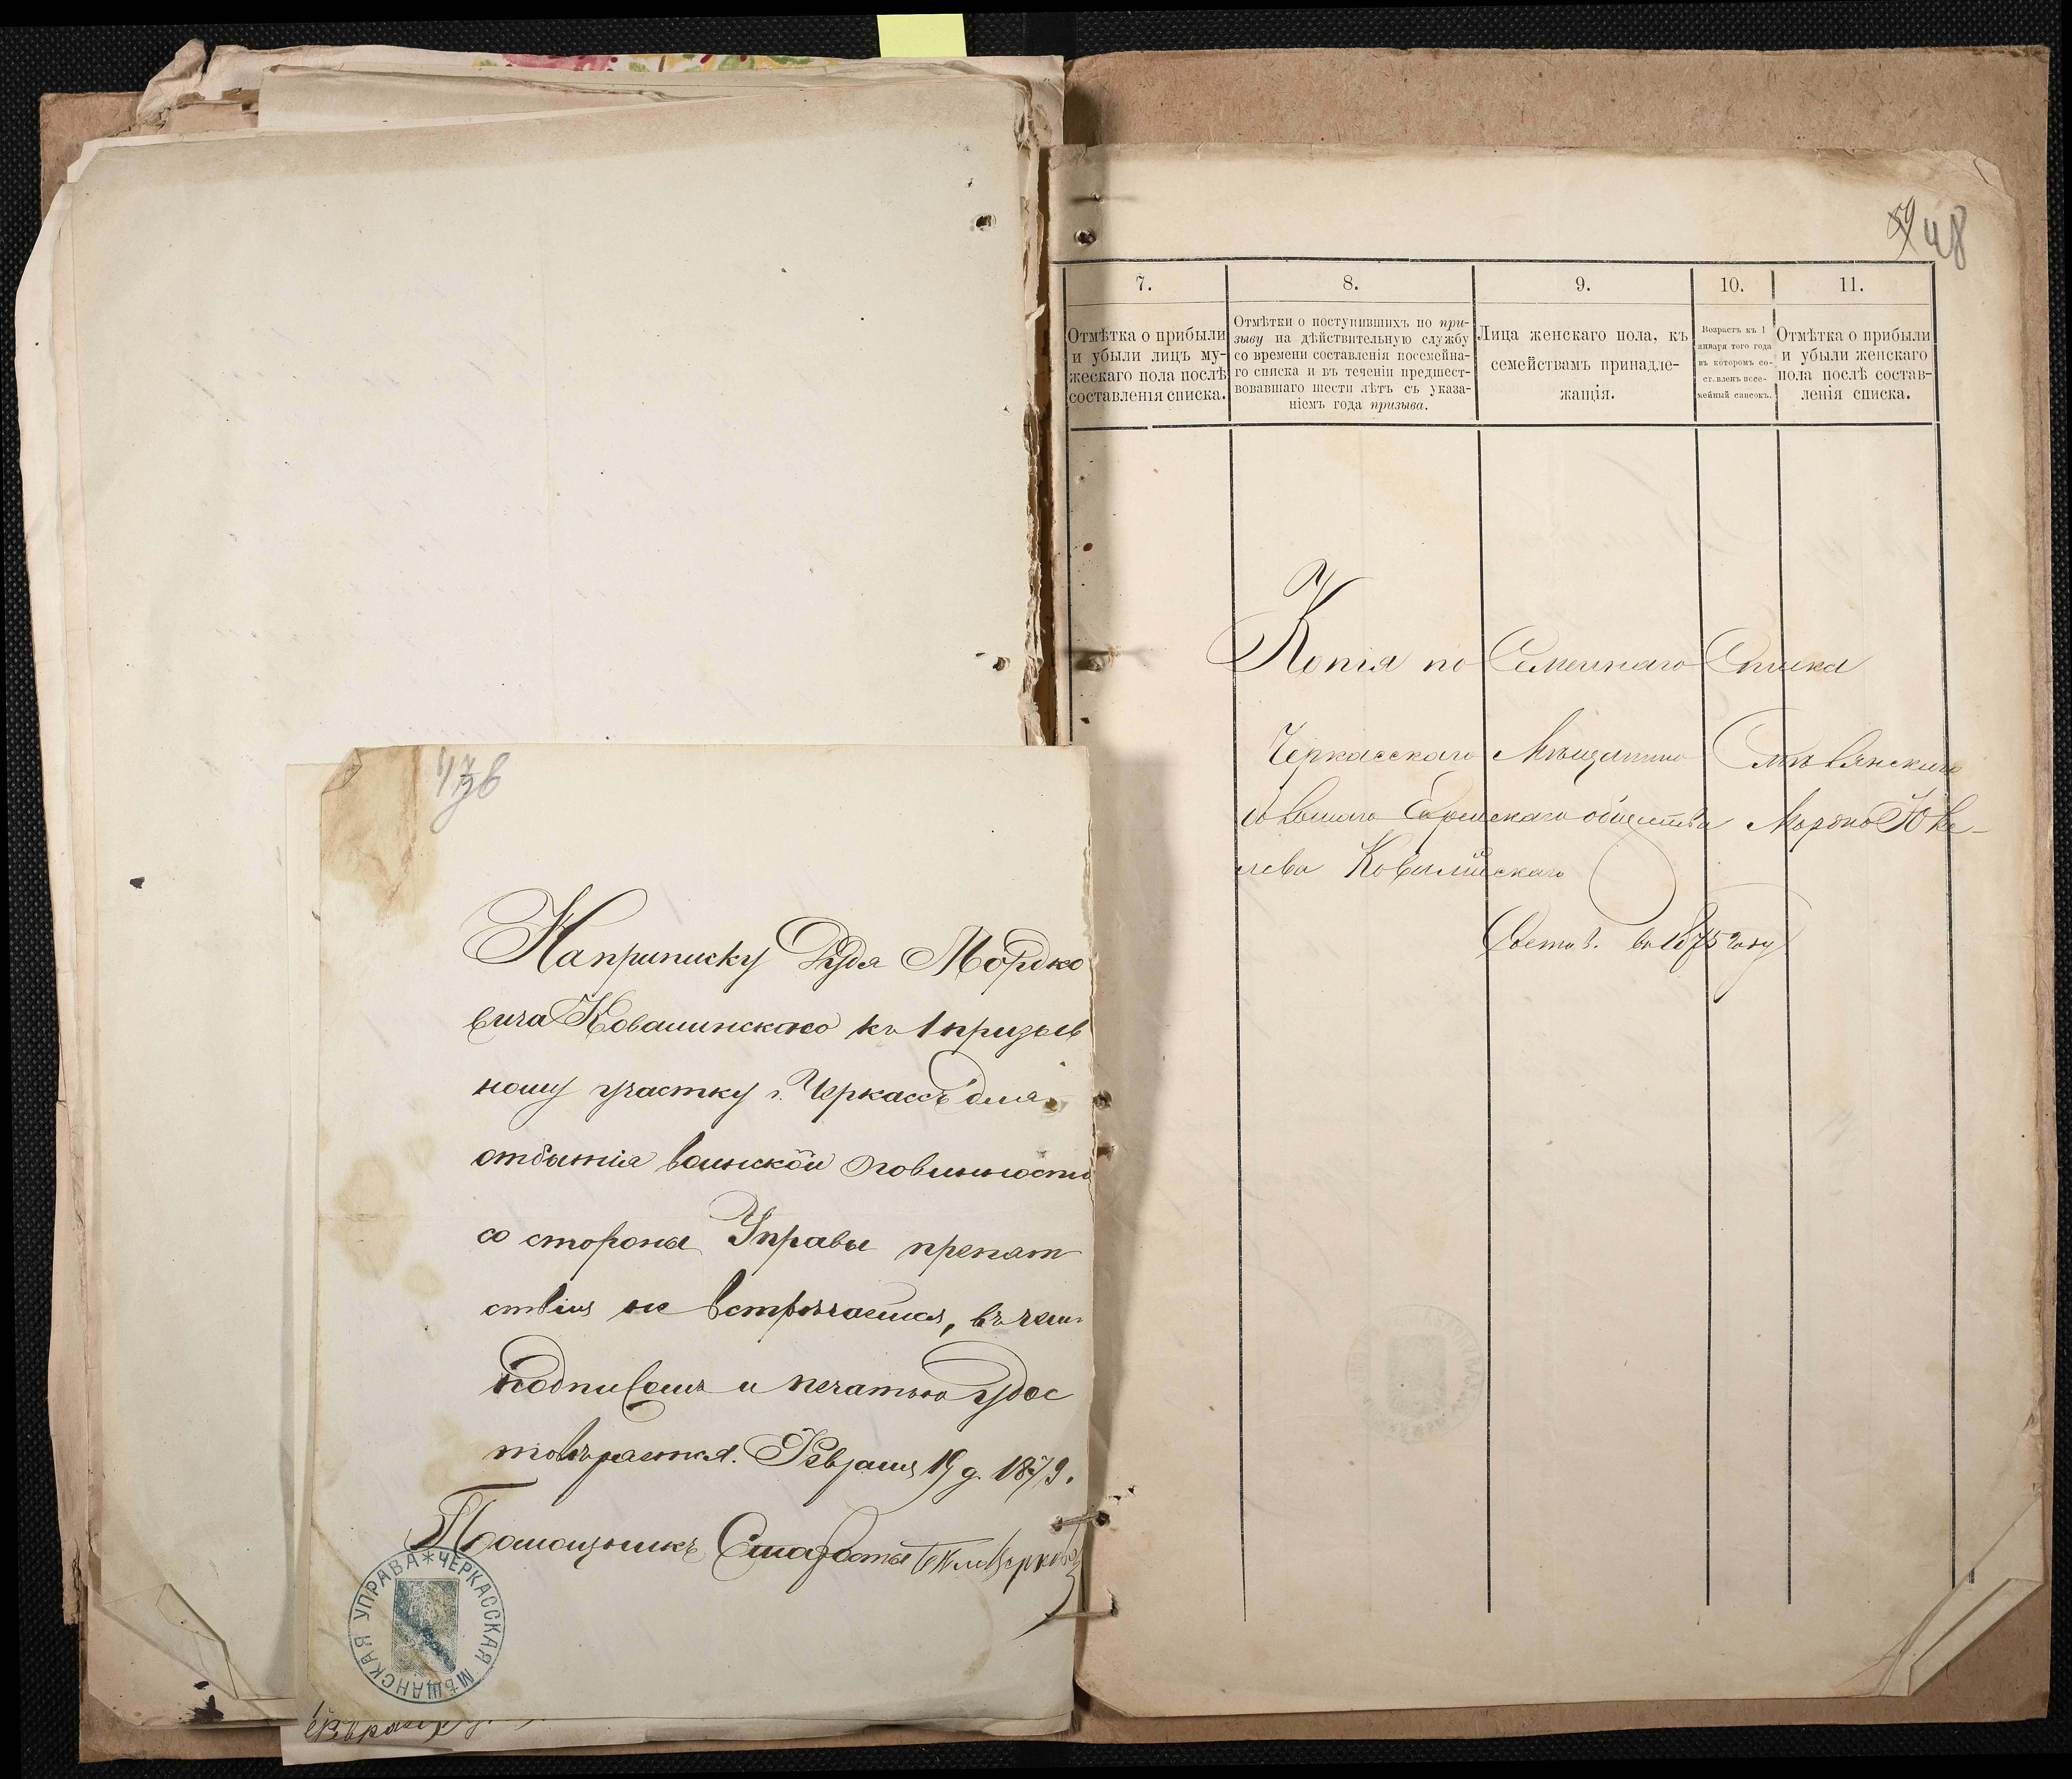 47 об
На приписку Дудя Мордко
вича Ковалинскаго къ 1 призыв
ному участку г. Черкассъ для
отбытія воинской повинности
со стороны Управы препят
ствія не встрѣчается, въ чемъ
подписомъ и печатью удос
товѣряется. Февраля 19 д. 1879.
Помощникъ Старосты
ЧЕРКАССКАЯ МѢЩАНСКАЯ УПРАВА
48
7.
8.
9.
10.
11.
Отмѣтка о прибыли
и убыли лицъ му-
жескаго пола послѣ
составленія списка.
Отмѣтки о поступившихъ по при-
зыву на дѣйствительную службу
со времени составленія посемейна-
го списка и въ теченіи предшест-
вовавшаго шести лѣтъ съ указа-
ніемъ года призыва.
Лица женскаго пола, къ
семействамъ принадле-
жащія.
Возрастъ къ 1
января того года
въ которомъ со-
ставленъ посе-
мейный списокъ.
Отмѣтка о прибыли
и убыли женскаго
пола послѣ состав-
ленія списка.
Копія по Семейнаго Списка
Черкасскаго Мѣщанина
Еврейскаго общества Мордко Юве-
лева Ковалинскаго
Состав. въ 1875 году